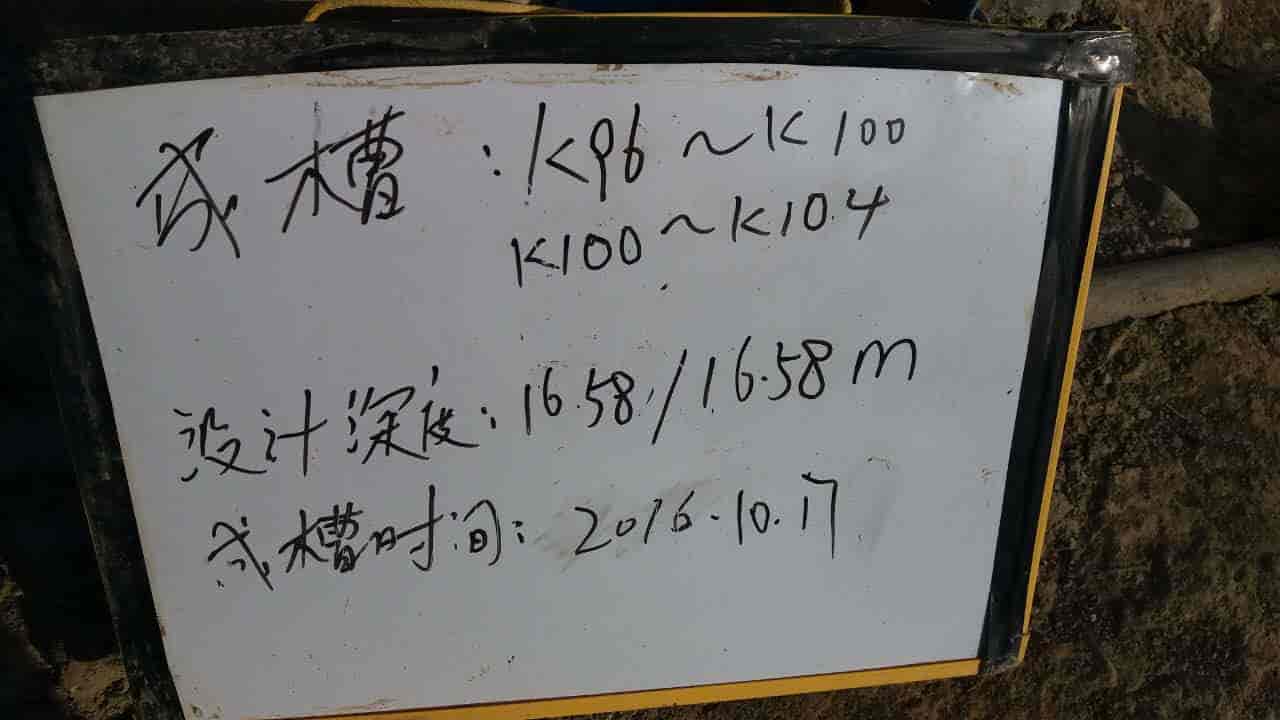 成槽:K96~K100
K100~K104
设计深度:16.58/16.58m
成槽时间:2016.10.17